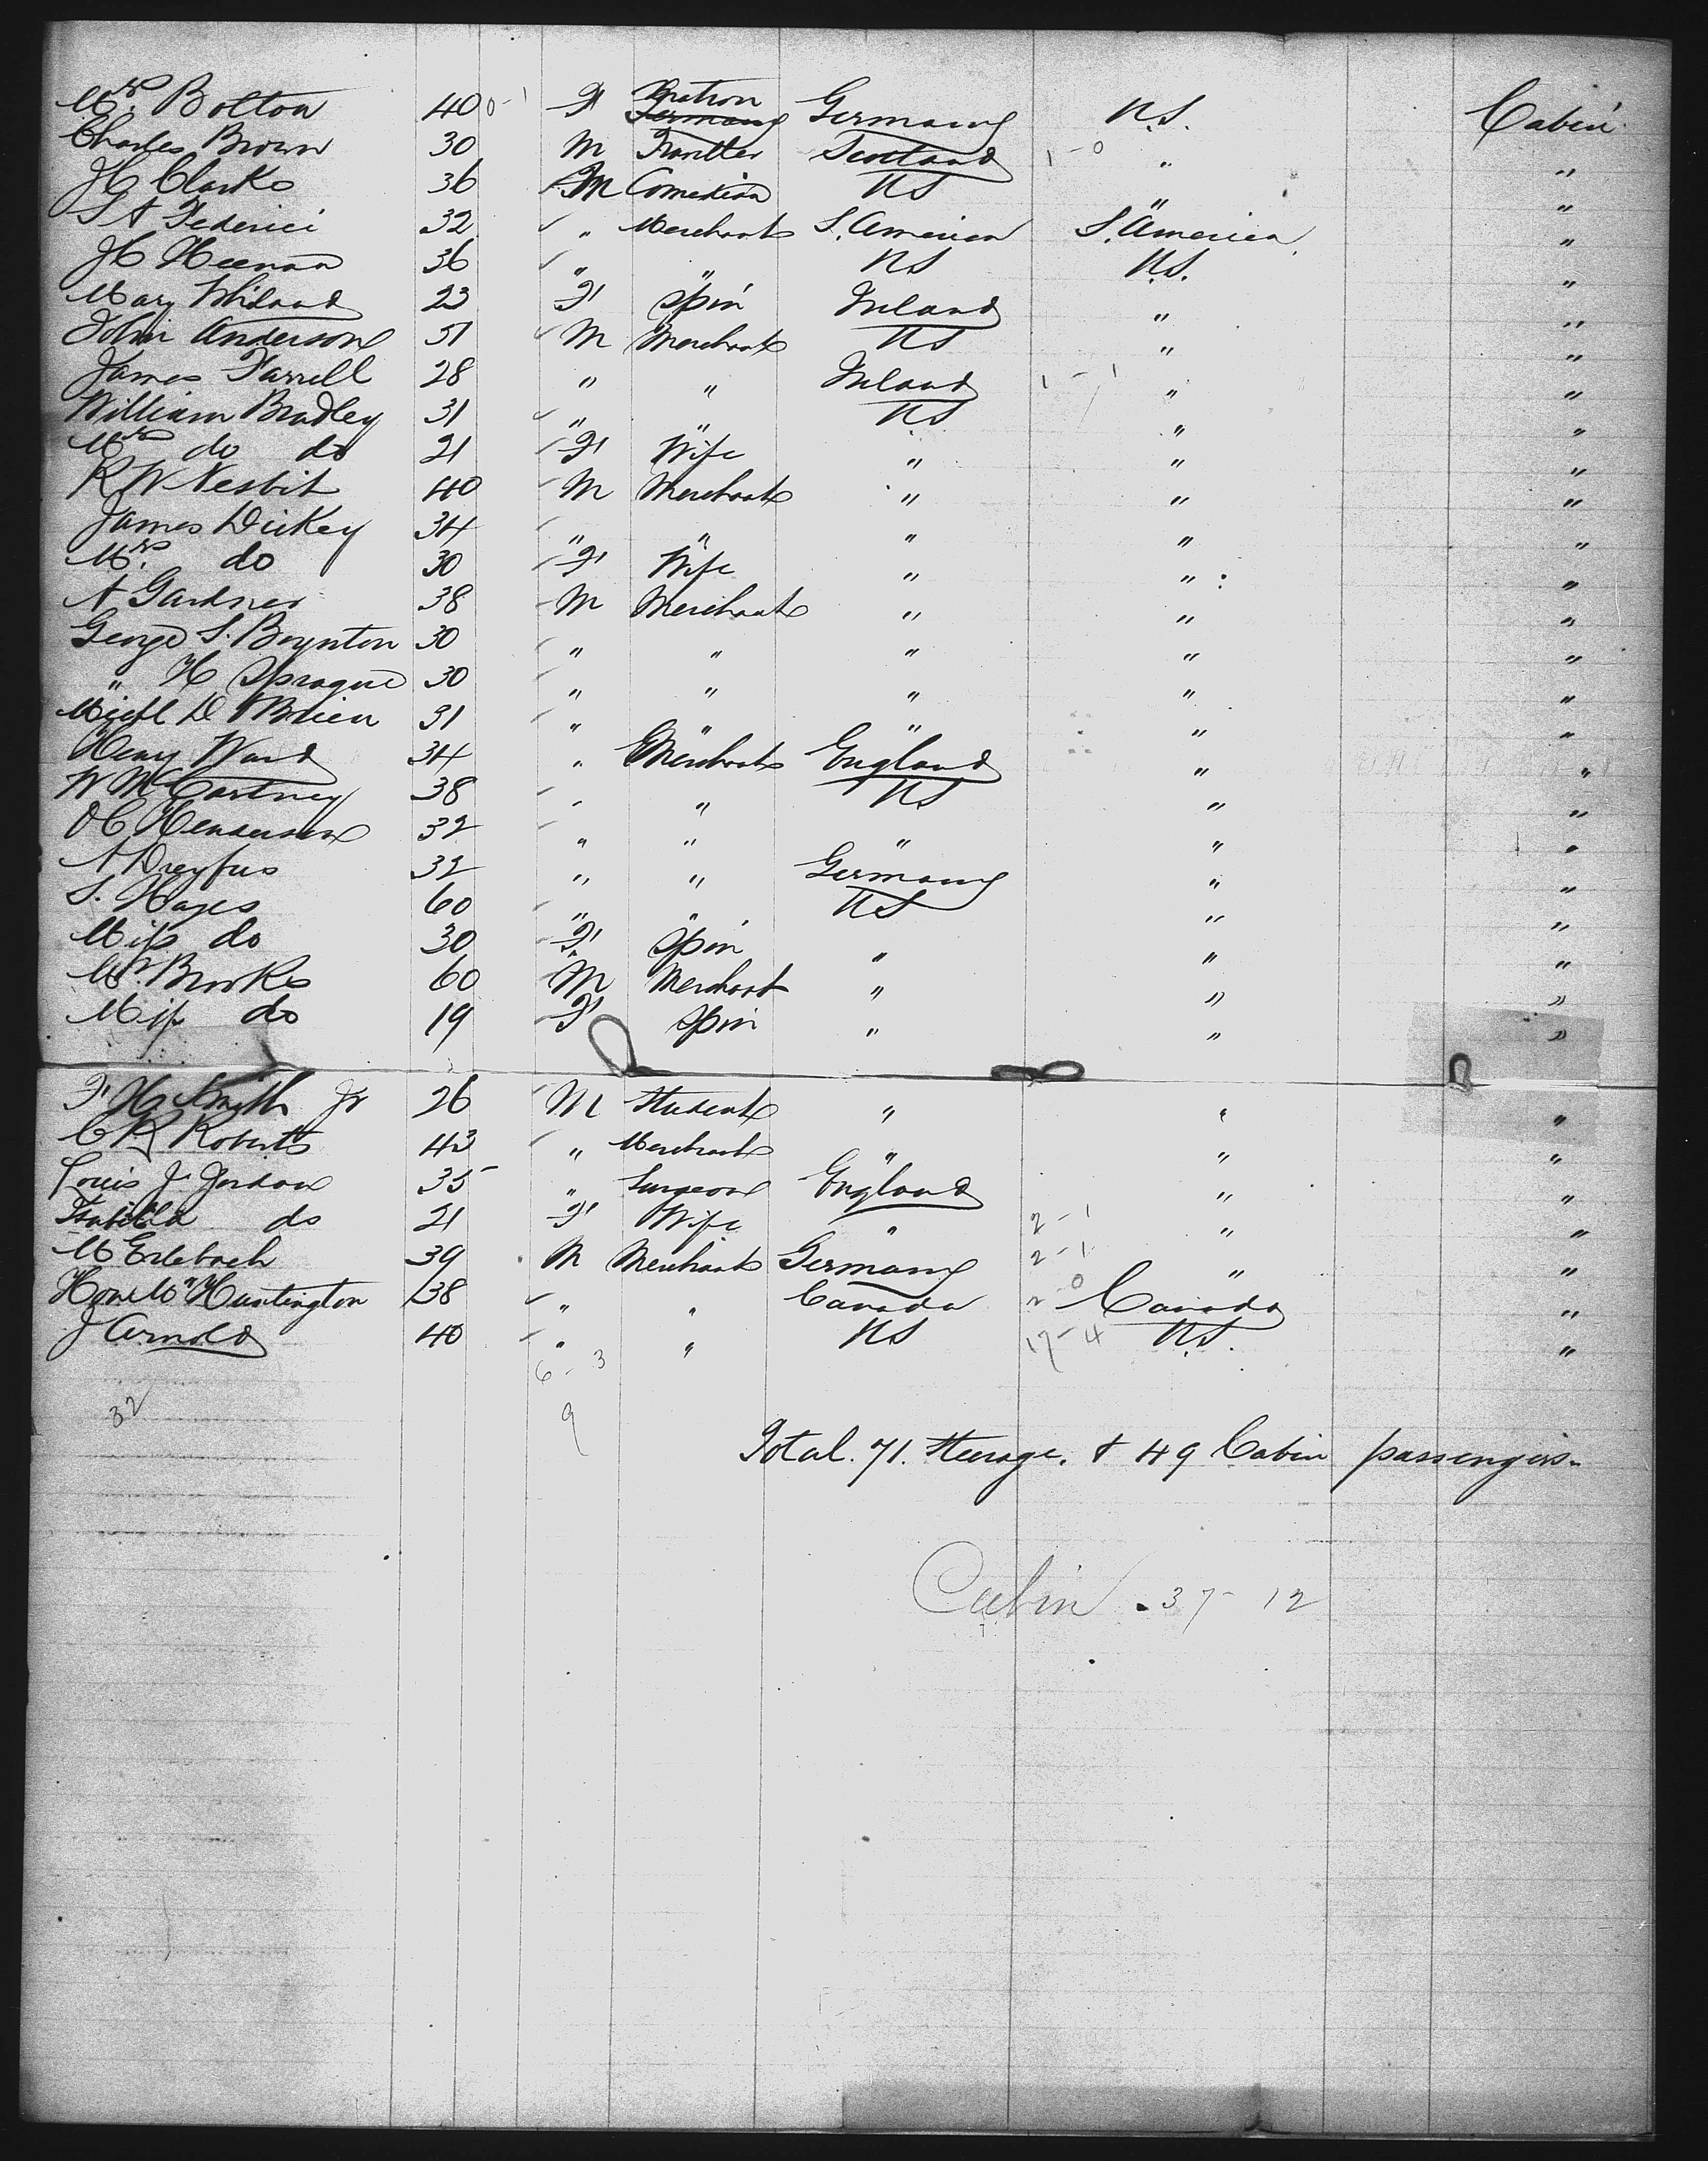 Mrs. Bolton 40 0-1 F Matron Germany Germany U.S. Cabin
Charles Brown 30 M Traveller Scotland 1-0 " "
H Clarke 36 M Comedian US " "
S A Federici 32 " Merchant S. America S. America "
H Heenan 36 " " US U.S. "
Mary 23 F Spin Ireland " "
John Anderson 51 M Merchant US " "
James Farrell 28 " " Ireland 1-1 " "
William Bradley 31 " " US " "
Mrs do do 21 F Wife " " "
R W Nesbit 40 M Merchant " " "
James Dickey 34 " " " " "
Mrs. do 30 F Wife " " "
A Gardner 38 M Merchant " " "
George S. Boynton 30 " " " " "
" H Sprague 30 " " " " "
Michl D OBrien 31 " " " " "
Henry Ward 34 " Merchant England " "
W McCartney 38 " " US " "
O C Henderson 32 " " " " "
A Dreyfus 32 " " Germany " "
S. Hayes 60 " " US " "
Miss do 30 F Spin " " "
Mr. Brookes 60 M Merchant " " "
Miss do 19 F Spin " " "
F H Smith Jr 26 M Student " " "
C R Roberts 43 " Merchant " " "
Louis J. Jordan 35 " Surgeon England " "
Isabella do 21 F Wife " 2-1 " "
M Erlebach 39 M Merchant Germany 2-1 " "
Huntington 38 " " Canada 2-0 Canada "
J Arnold 40 " " US 17-4 U.S. "
6-3
32
9
Total. 71. Steerage. & 49 Cabin passengers.
Cabin . 37-12